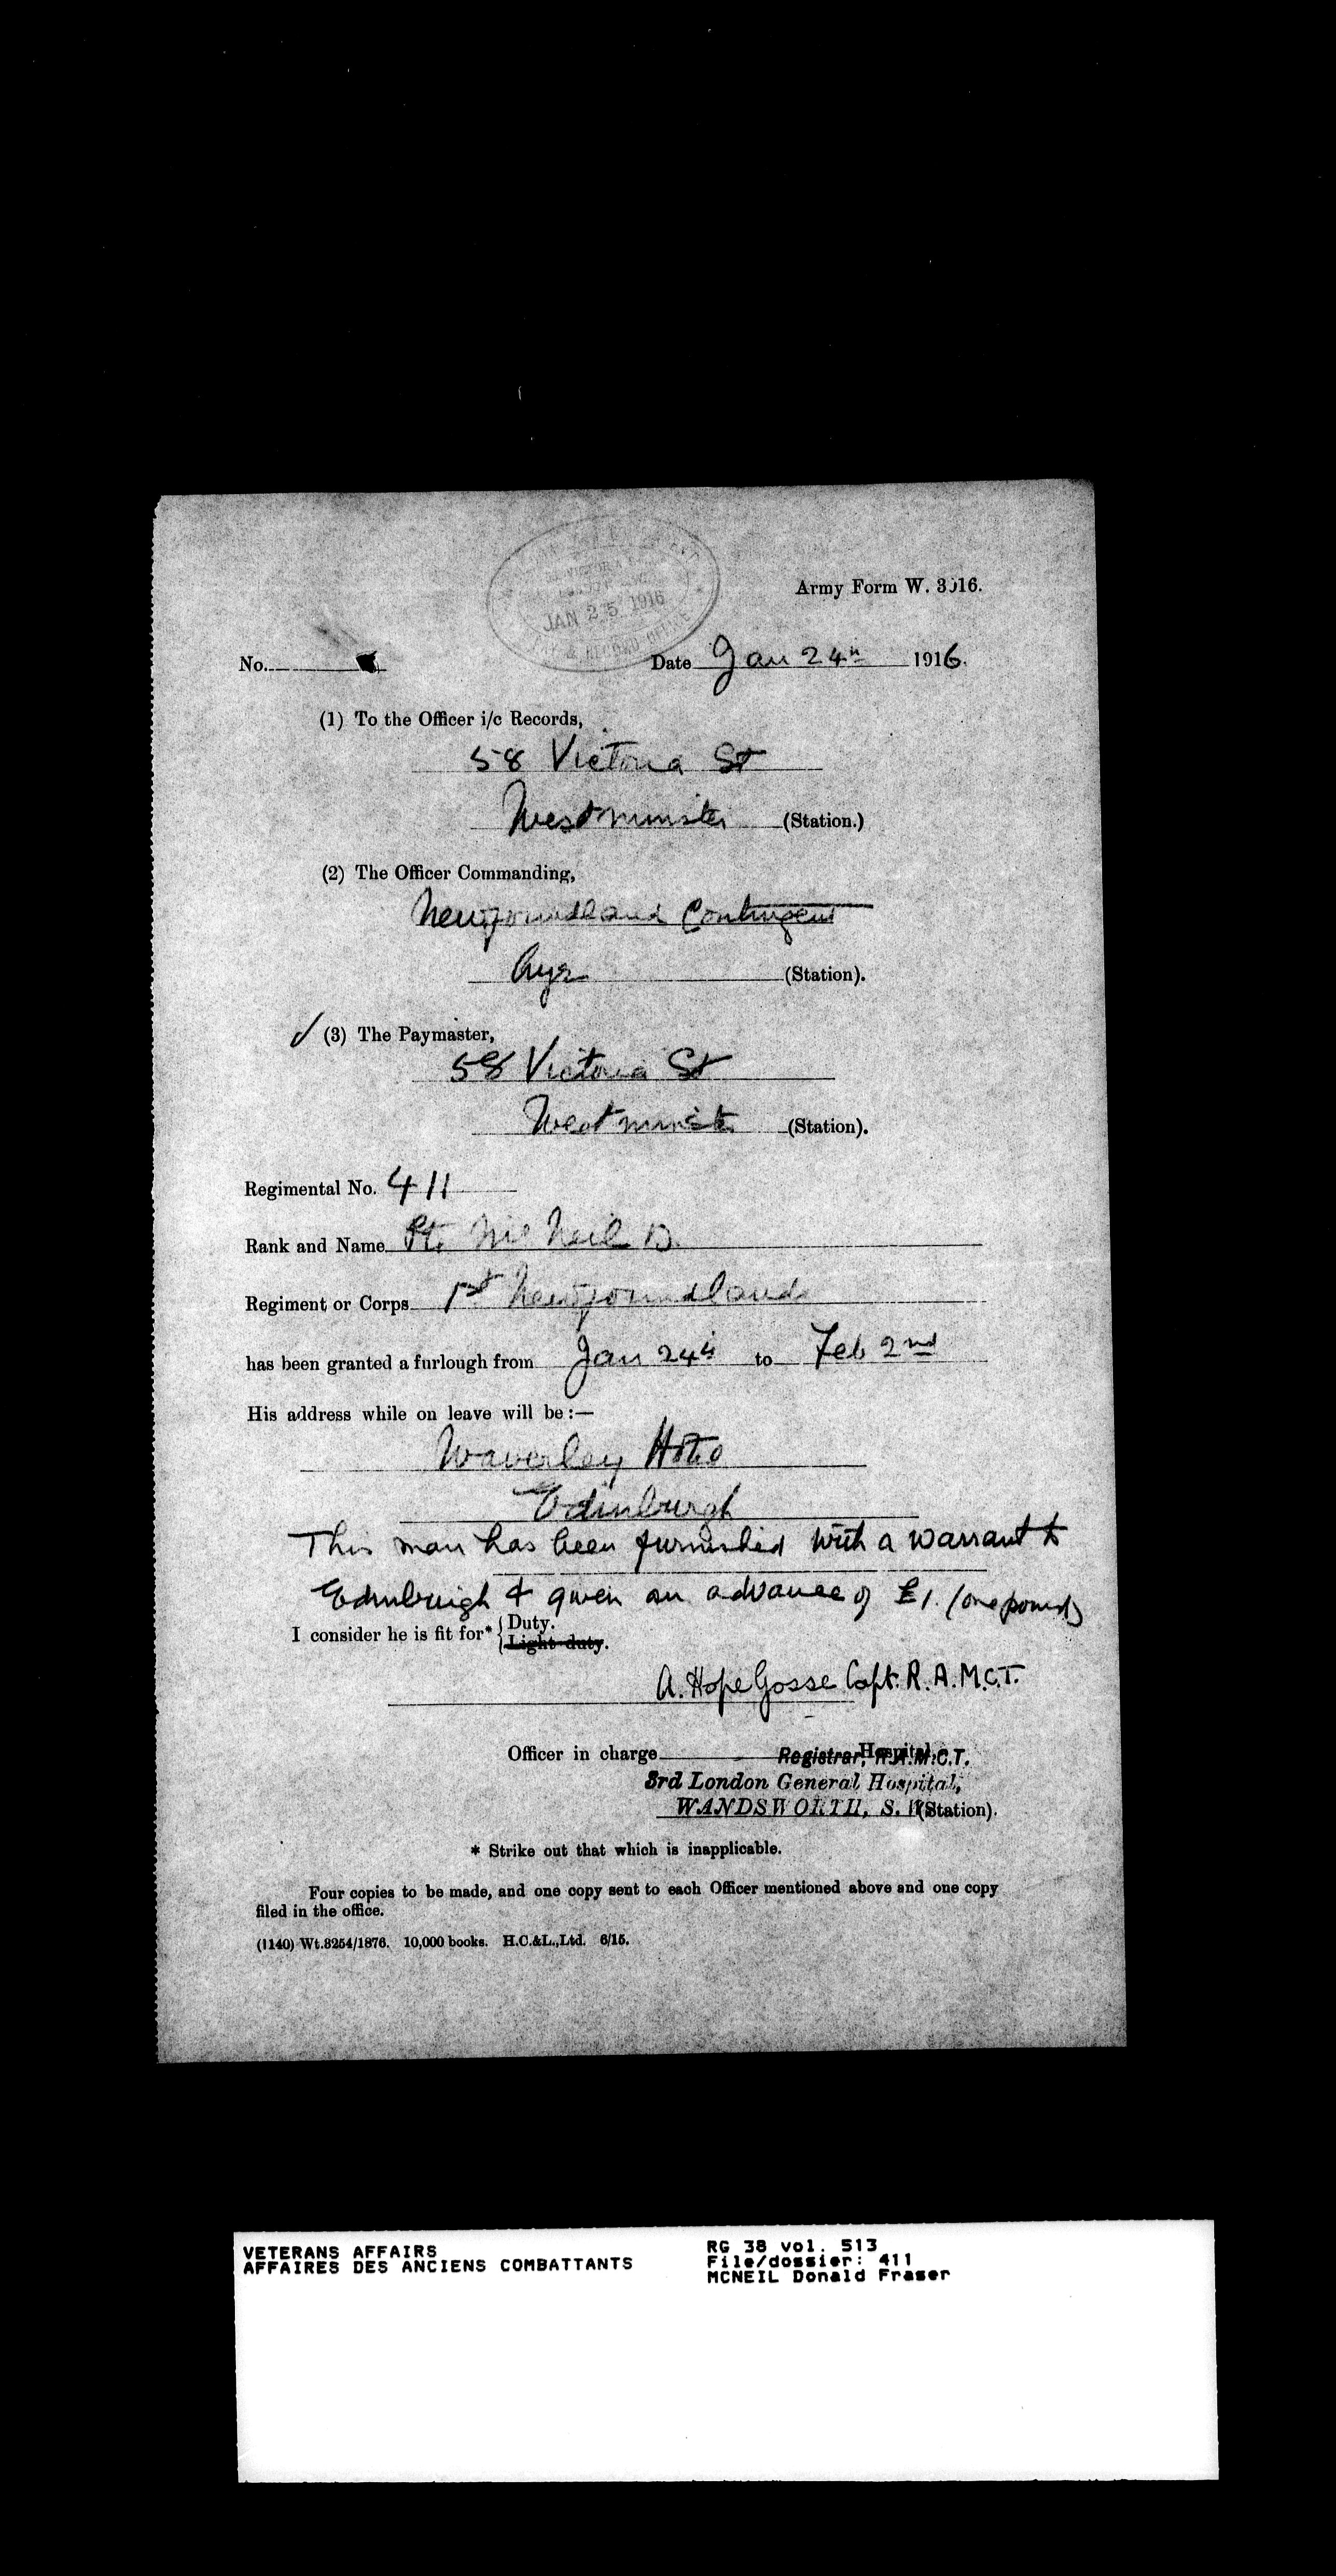 58 VICTORIA
JAN 25 1916
& RECORD OFFICE
Army Form W. 3016.
No. Date Jan 24th 1916.
(1) To the Officer i/c Records,
58 Victoria St
Westminster (Station.)
(2) The Officer Commanding,
Newfoundland Contingent
Ayr (Station).
(3) The Paymaster,
58 Victoria St
Westminster (Station).
Regimental No. 411
Rank and Name Pte McNeil D.
Regiment or Corps 1st Newfoundland
has been granted a furlough from Jan 24th to Feb 2nd
His address while on leave will be:—
Waverley Hotel
Edinburgh
This man has been furnished with a warrant to
Edinburgh & given an advance of £1. (one pound)
I consider he is fit for* { Duty.
Light duty.
A. Hope Gosse Capt. R.A.M.C.T.
Officer in charge Hospital,
Registrar, R.A.M.C.T.
3rd London General Hospital,
WANDSWORTH, S.W. (Station).
* Strike out that which is inapplicable.
Four copies to be made, and one copy sent to each Officer mentioned above and one copy
filed in the office.
(1140) Wt.8254/1876. 10,000 books. H.C.&L.,Ltd. 6/15.
VETERANS AFFAIRS RG 38 vol. 513
AFFAIRES DES ANCIENS COMBATTANTS File/dossier: 411
MCNEIL Donald Fraser